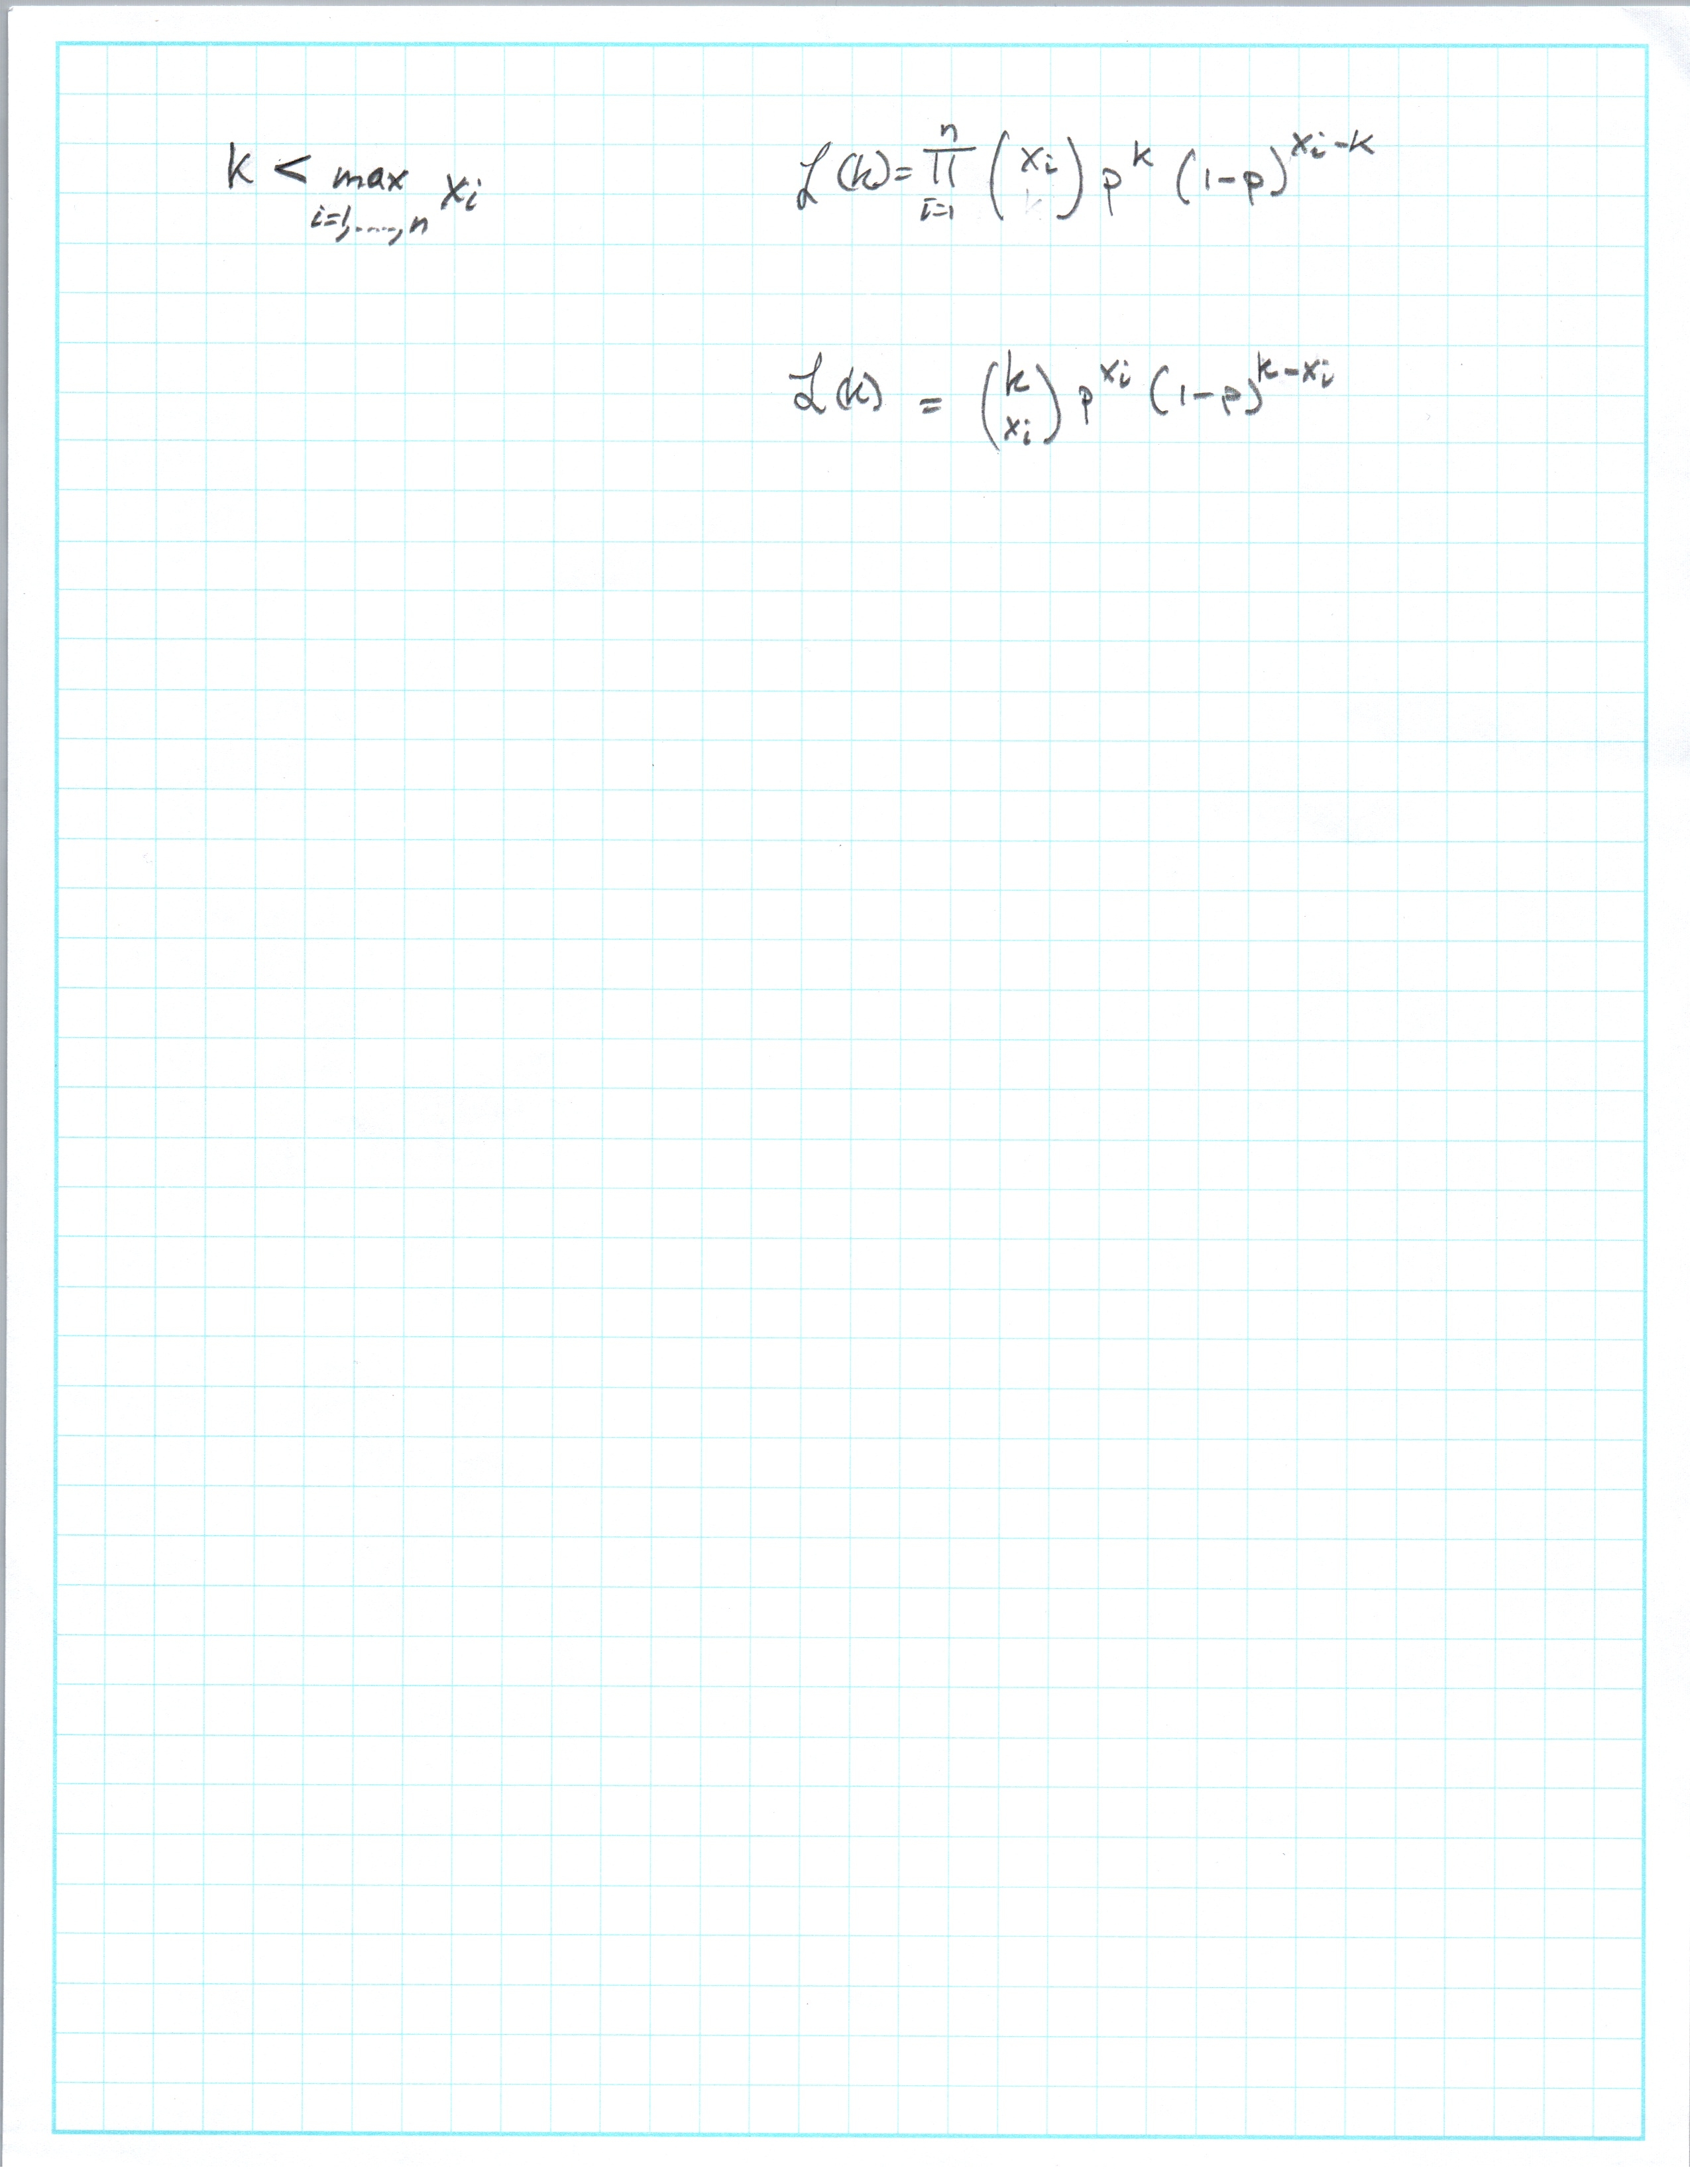 k < max xi i=1,....,n
ℒ(k) = ∏ i=1 n (xi k) p^k (1-p)^xi-k
ℒ(k) = (k xi) p^xi (1-p)^k-xi